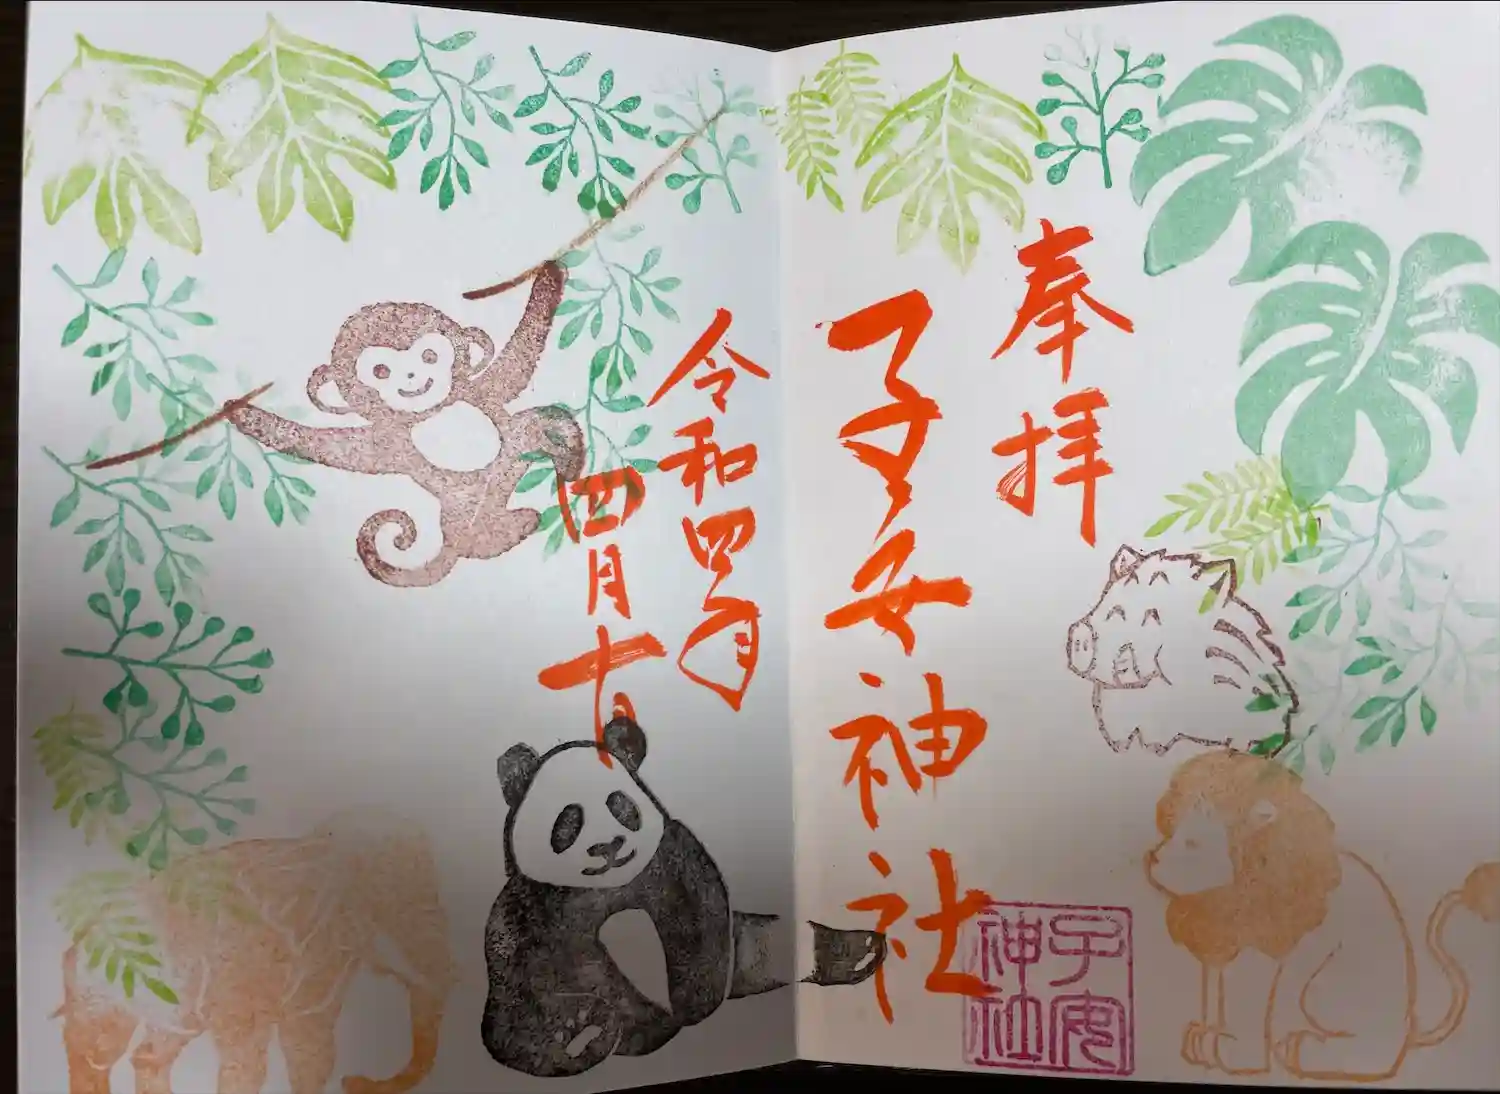 奉拝
子安神社
子安
神社
令和四年
四月十日